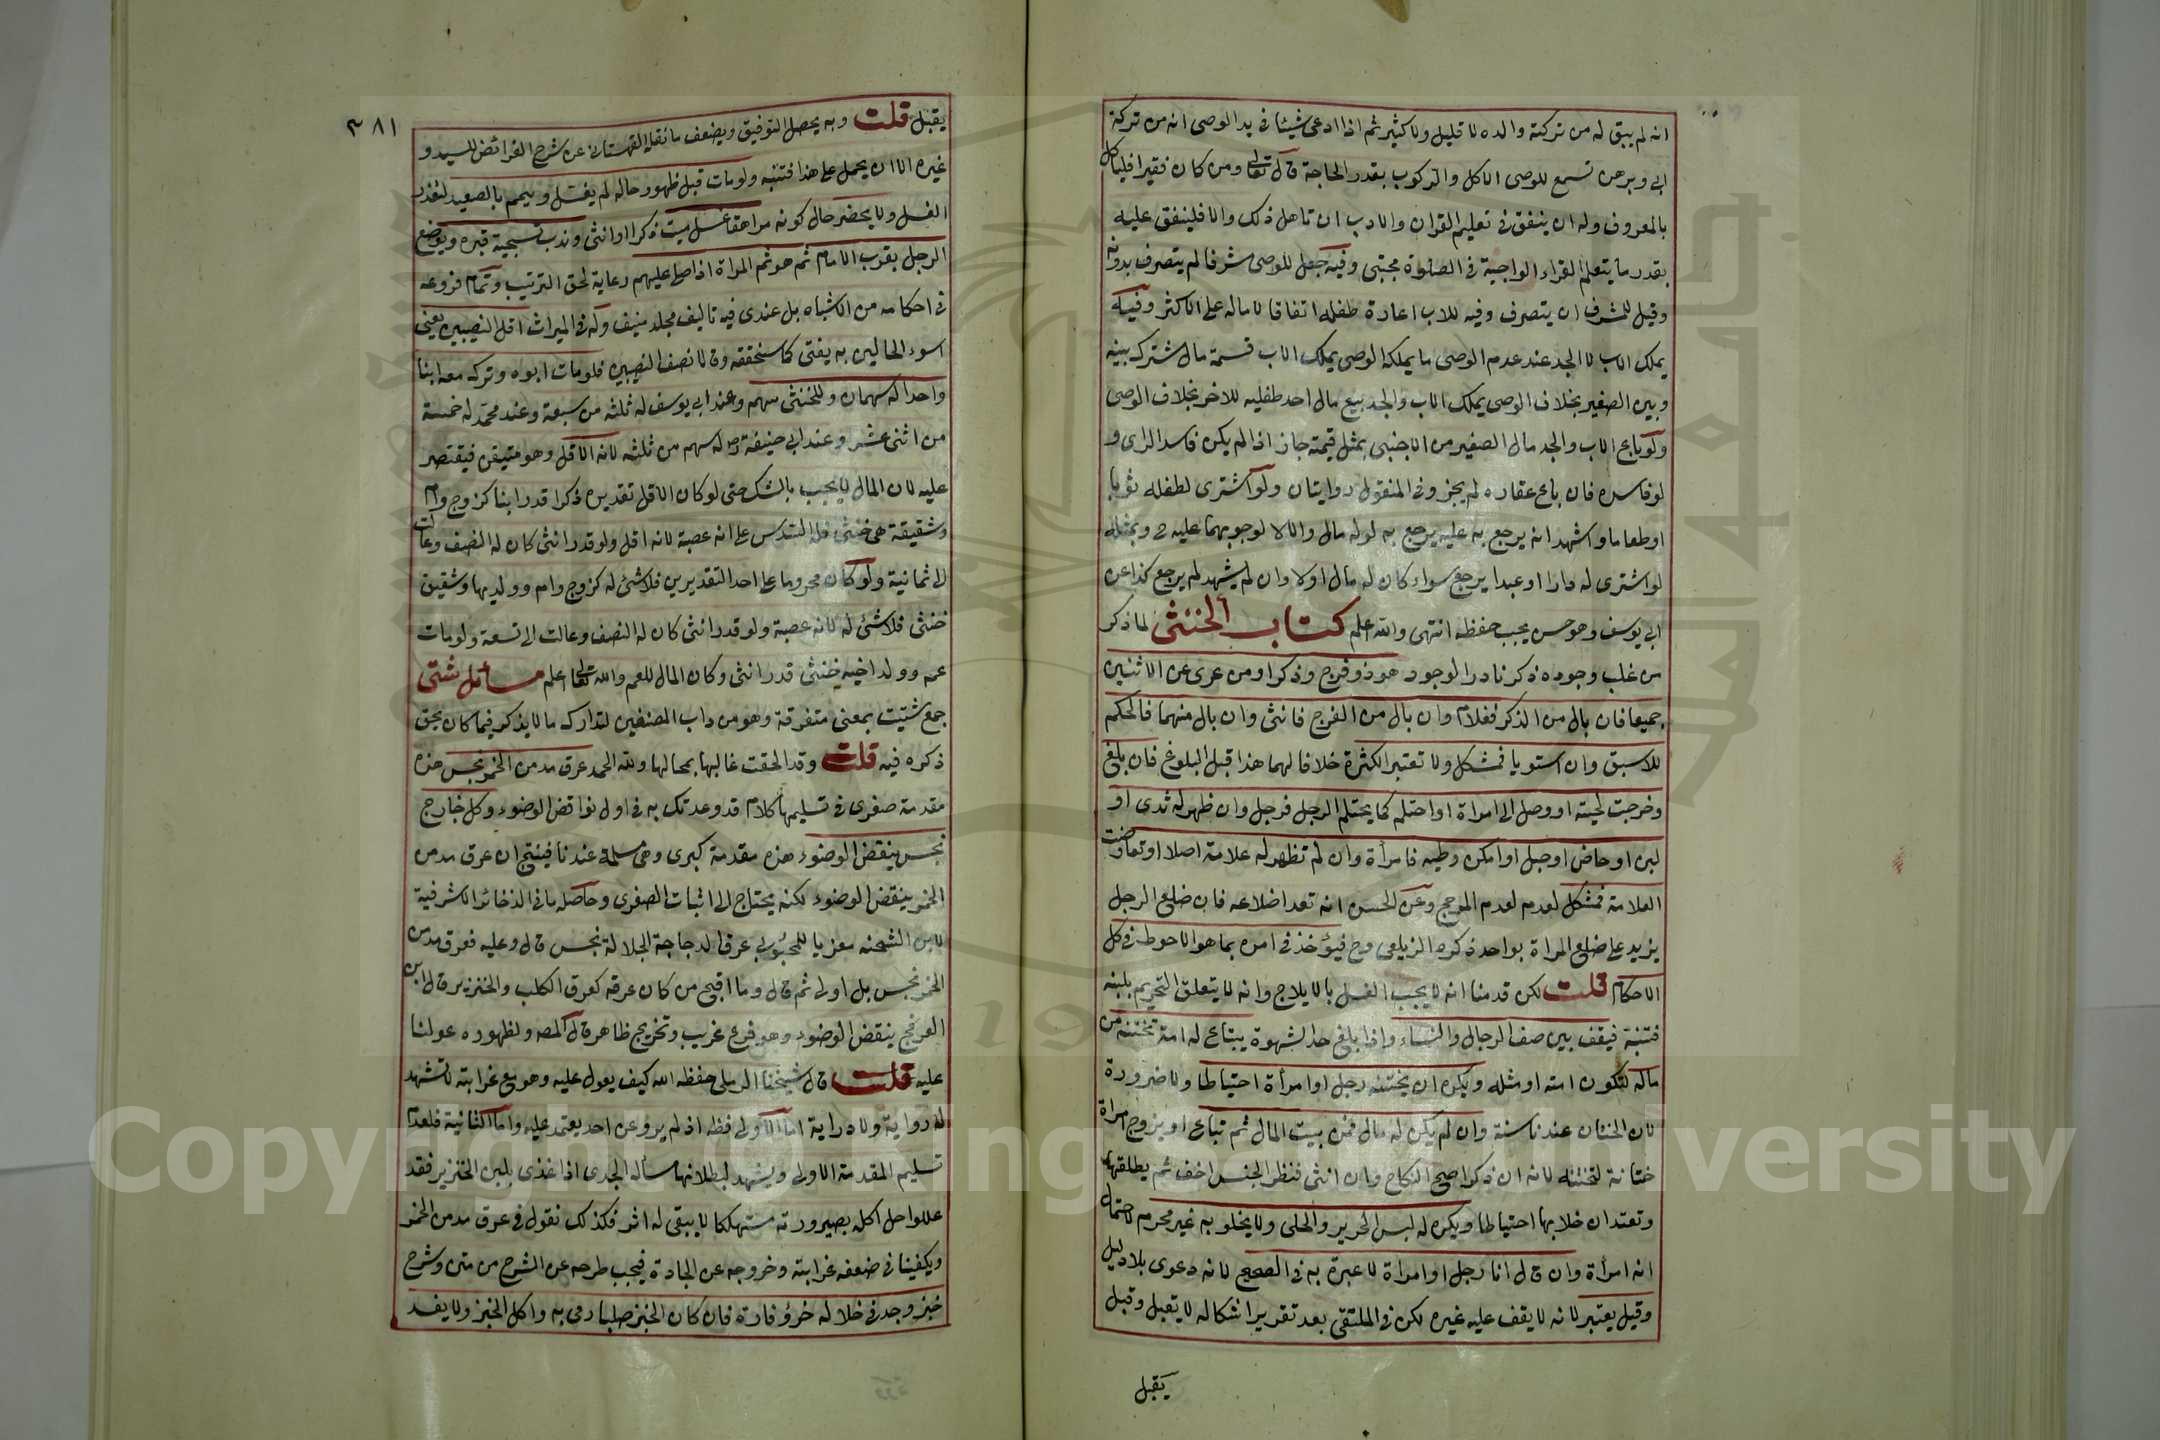 انه لم يبق له من تركة والده لا قليل ولا كثير ثم اذا ادعى شيئا في يد الوصى انه من تركة
ابي وبرهن تسمع للوصى الاكل والركوب بقدر الحاجة قال تعالى ومن كان فقيرا فلياكل
بالمعروف وله ان ينفق في تعليم القران والادب ان تاهل ذلك والا فلينفق عليه
بقدر ما يتعلم القراءة الواجبة في الصلوة مجتبى وفيه جعل للوصى مشرفا لم يتصرف بدونه
وقيل للمشرف ان يتصرف وفيه للاب اعارة طفله اتفاقا لا ماله على الاكثر وفيه
يملك الاب لا الجد عند عدم الوصى ما يملكه الوصى يملك الاب قسمة مال مشترك بينه
وبين الصغير بخلاف الوصى يملك الاب والجد بيع مال احد طفليه للاخر بخلاف الوصى
ولو باع الاب والجد مال الصغير من الاجنبى بمثل قيمته جاز اذا لم يكن فاسد الراى و
لو فاسده فان باع عقاره لم يجز وفي المنقول روايتان ولو اشترى لطفله ثوبا
او طعاما واشهد انه يرجع به عليه يرجع به لو له مال والا لا لوجوبهما عليه ح وبمثله
لو اشترى له دارا او عبدا يرجع سواء كان له مال اولا وان لم يشهد لم يرجع كذا عن
ابي يوسف وهو حسن يجب حفظه انتهى والله اعلم كتاب الخنثى لما ذكر
من غلب وجوده ذكر نادر الوجود هو ذو فرج وذكر او من عرى عن الاثنين
جميعا فان بال من الذكر فغلام وان بال من الفرج فانثى وان بال منهما فالحكم
للاسبق وان استويا فمشكل ولا تعتبر الكثرة خلافا لهما هذا قبل البلوغ فان بلغ
وخرجت لحيته او وصل الى امراة او احتلم كما يحتلم الرجل فرجل وان ظهر له ثدى او
لبن او حاض او حبل او امكن وطيه فامرأة وان لم تظهر له علامة اصلا او تعارضت
العلامة فمشكل لعدم لعدم المرجح وعن الحسن انه تعد اضلاعه فان ضلع الرجل
يزيد على ضلع المراة بواحد ذكره الزيلعى وح فيؤخذ في امره بما هو الاحوط في كل
الاحكام قلت لكن قدمنا انه لا يجب الغسل بالايلاج وانه لا يتعلق التحريم بلبنه
فتنبه فيقف بين صف الرجال والنساء واذا بلغ حد الشهوة يبتاع له امة تختنه من
ماله لتكون امته او مثله ويكره ان يختنه رجل او امرأة احتياطا ولا ضرورة
لان الختان عندنا سنة وان لم يكن له مال فمن بيت المال ثم تباع او يزوج امراة
ختانة لتختنه لانه ان ذكرا صح النكاح وان انثى فنظر الجنس اخف ثم يطلقها
وتعتد ان خلا بها احتياطا ويكره له لبس الحرير والحلى ولا يخلو به غير محرم لاحتمال
انه امرأة وان قال انا رجل او امراة لا عبرة به في الصحيح لانه دعوى بلا دليل
وقيل يعتبر لانه لا يقف عليه غيره لكن في الملتقى بعد تقرير اشكاله لا يقبل وقبل
يقبل
٣٨١
يقبل قلت وبه يحصل التوفيق ويضعف ما نقله القهستانى عن شرح الفرائض للسيد و
غيره الا ان يحمل على هذا فتنبه ولو مات قبل ظهور حاله لم يغسل وييمم بالصعيد لتعذر
الغسل ولا يحضر حال كونه مراهقا غسل ميت ذكرا او انثى وندب تسجية قبره ويوضع
الرجل بقرب الامام ثم هو ثم المراة اذا صلى عليهم رعاية لحق الترتيب وتمام فروعه
في احكامه من الاشباه بل عندى فيه تاليف مجلد منيف وله في الميراث اقل النصيبين يعنى
اسوء الحالين به يفتى كما سنحققه وقالا نصف النصيبين فلو مات ابوه وترك معه ابنا
واحدا له سهمان وللخنثى سهم وعند ابي يوسف له ثلثه من سبعة وعند محمد له خمسة
من اثنى عشر وعند ابي حنيفة رح له سهم من ثلثه لانه الاقل وهو متيقن فيقتصر
عليه لان المال لا يجب بالشك حتى لو كان الاقل تقديره ذكرا قدر ابنا كزوج وام
وشقيقة هى خنثى فله السدس على انه عصبة لانه اقل ولو قدر انثى كان له النصف وعالت
الى ثمانية ولو كان محروما على احد التقديرين فلا شئ له كزوج وام وولديها وشقيق
خنثى فلا شئ له لانه عصبة ولو قدر انثى كان له النصف وعالت الى تسعة ولو مات
عمه وولد اخيه خنثى قدر انثى وكان المال للعم والله تعالى اعلم مسائل شتى
جمع شتيت بمعنى متفرقة وهو من داب المصنفين لتدارك ما لا يذكر فيما كان يحق
ذكره فيه قلت وقد الحقت غالبها بمحالها ولله الحمد عرق مدمن الخمر نجس هذه
مقدمة صغرى في تسليمها كلام قد وعدتك به في اول نواقض الوضوء وكل خارج
نجس ينقض الوضوء هذه مقدمة كبرى وهى مسلمة عندنا فينتج ان عرق مدمن
الخمر ينقض الوضوء لكنه يحتاج الى اثبات الصغرى وحاصله ما في الذخائر الاشرفية
لابن الشحنه معزيا للمجتبى عرق الدجاجة الجلالة نجس قال وعليه فعرق مدمن
الخمر نجس بل اولى ثم قال وما اقبح من كان عرقه كعرق الكلب والخنزير قال ابن
العز فح ينقض الوضوء وهو فرع غريب وتخريج ظاهر قال المص ولظهوره عولنا
عليه قلت قال شيخنا الرملى حفظه الله كيف يعول عليه وهو مع غرابته لا تشهد
له رواية ولا دراية اما الاولى فظه اذ لم يرو عن احد يعتمد عليه واما الثانية فلعدم
تسليم المقدمة الاولى ويشهد لبطلانها مسألة الجدى اذا غذى بلبن الخنزير فقد
عللوا حل اكله بصيرورته مستهلكا لا يبقى له اثر فكذلك نقول في عرق مدمن الخمر
ويكفينا في ضعفه غرابته وخروجه عن الجادة فيجب طرحه عن السرح من متن وشرح
خبز وجد في خلاله خرؤ فارة فان كان الخبز صلبا رمى به واكل الخبز ولا يفسد
Copyright © King Saud University